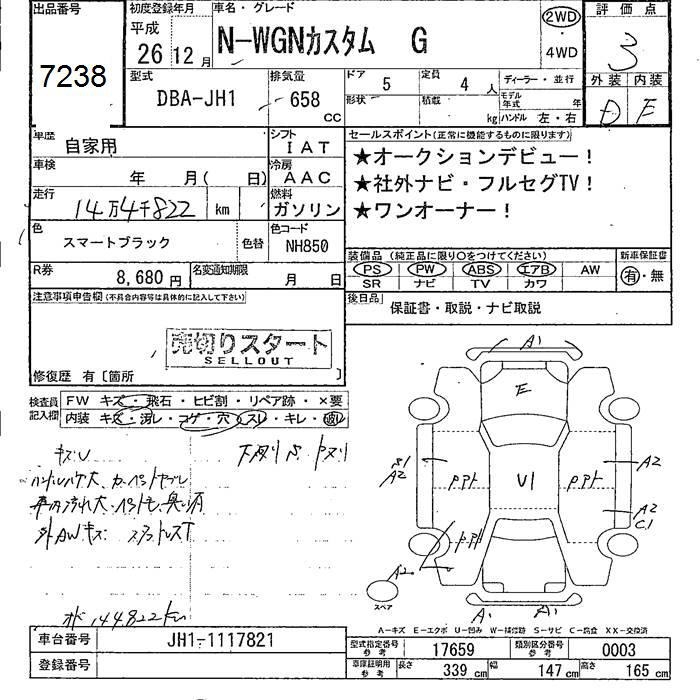 出品番号
7238
初度登録年月
平成
26年12月
車名・グレード
N-WGNカスタム G
2WD
・
4WD
評価点
3
外装 内装
D E
型式
DBA-JH1
排気量
658
CC
ドア 5
形状
定員 4 人
積載 kg
ディーラー・並行
モデル年式 年
ハンドル 左・右
車歴
自家用
シフト
IAT
車検
年 月( 日)
冷房
AAC
走行
14万4千822 km
燃料
ガソリン
色
スマートブラック
色替
色コード
NH850
R券
8,680円
名変通知期限
月 日
セールスポイント(正常に機能するものに限ります)
★オークションデビュー!
★社外ナビ・フルセグTV!
★ワンオーナー!
装備品(純正品に限り○をつけてください)
PS PW ABS エアB AW
SR ナビ TV カワ
新車保証書
有・無
後日品
保証書・取説・ナビ取説
注意事項申告欄(不具合内容等は具体的に記入して下さい)
売切りスタート
SELLOUT
修復歴 有〔箇所 〕
検査員記入欄
FW キズ・飛石・ヒビ割・リペア跡・×要
内装 キズ・汚レ・コゲ・穴・スレ・キレ・
キズU
外AWキズ
144822km
A1
E
A2
A2
A2
C1
U1
A2
スペア
A1
A1
A-キズ E-エクボ U-凹み W-補修跡 S-サビ C-腐食 XX-交換済
車台番号
JH1-1117821
登録番号
型式指定番号
参考
17659
類別区分番号
参考
0003
車庫証明用
参考
長さ 339 cm
幅 147 cm
高さ 165 cm